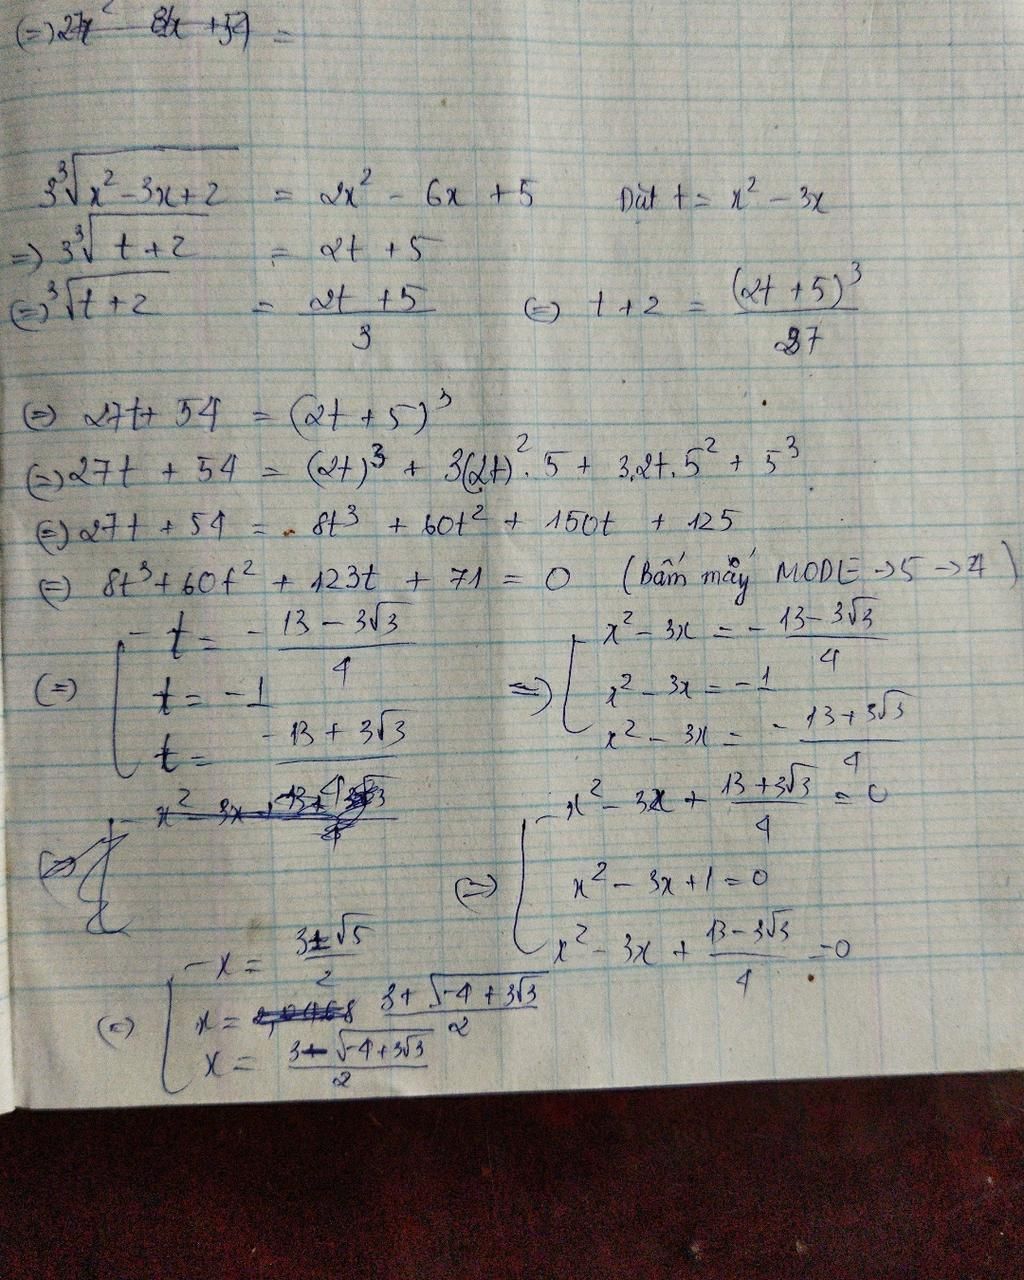 (=) 27x² - 81x + 54 =
3∛(x² - 3x + 2) = 2x² - 6x + 5 Đặt t = x² - 3x
=) 3∛(t + 2) = 2t + 5
(=) ∛(t + 2) = (2t + 5)/3 (=) t + 2 = (2t + 5)³/27
(=) 27t + 54 = (2t + 5)³
(=) 27t + 54 = (2t)³ + 3(2t)².5 + 3.2t.5² + 5³
(=) 27t + 54 = 8t³ + 60t² + 150t + 125
(=) 8t³ + 60t² + 123t + 71 = 0 (Bấm máy MODE → 5 → 4)
(=) [ t = - (13 - 3√3)/4 =) [ x² - 3x = - (13 - 3√3)/4
t = -1 x² - 3x = -1
t = (-13 + 3√3)/4 x² - 3x = - (13 + 3√3)/4
(=) [ x² - 3x + (13 + 3√3)/4 = 0
x² - 3x + 1 = 0
x² - 3x + (13 - 3√3)/4 = 0
(=) [ x = (3 ± √5)/2
x = (3 + √(-4 + 3√3))/2
x = (3 - √(-4 + 3√3))/2